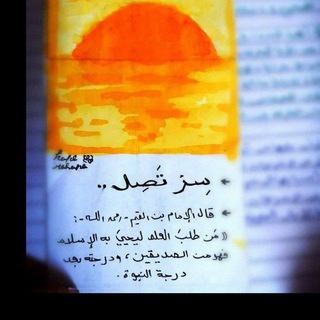 سِرْ تَصِل ..
قال الإمام بن القيم - رحمه الله - :
(( مَن طلبَ العلم ليُحييَ به الإسلام
فهو من الصديقين ، ودرجته بعد
درجة النبوة .